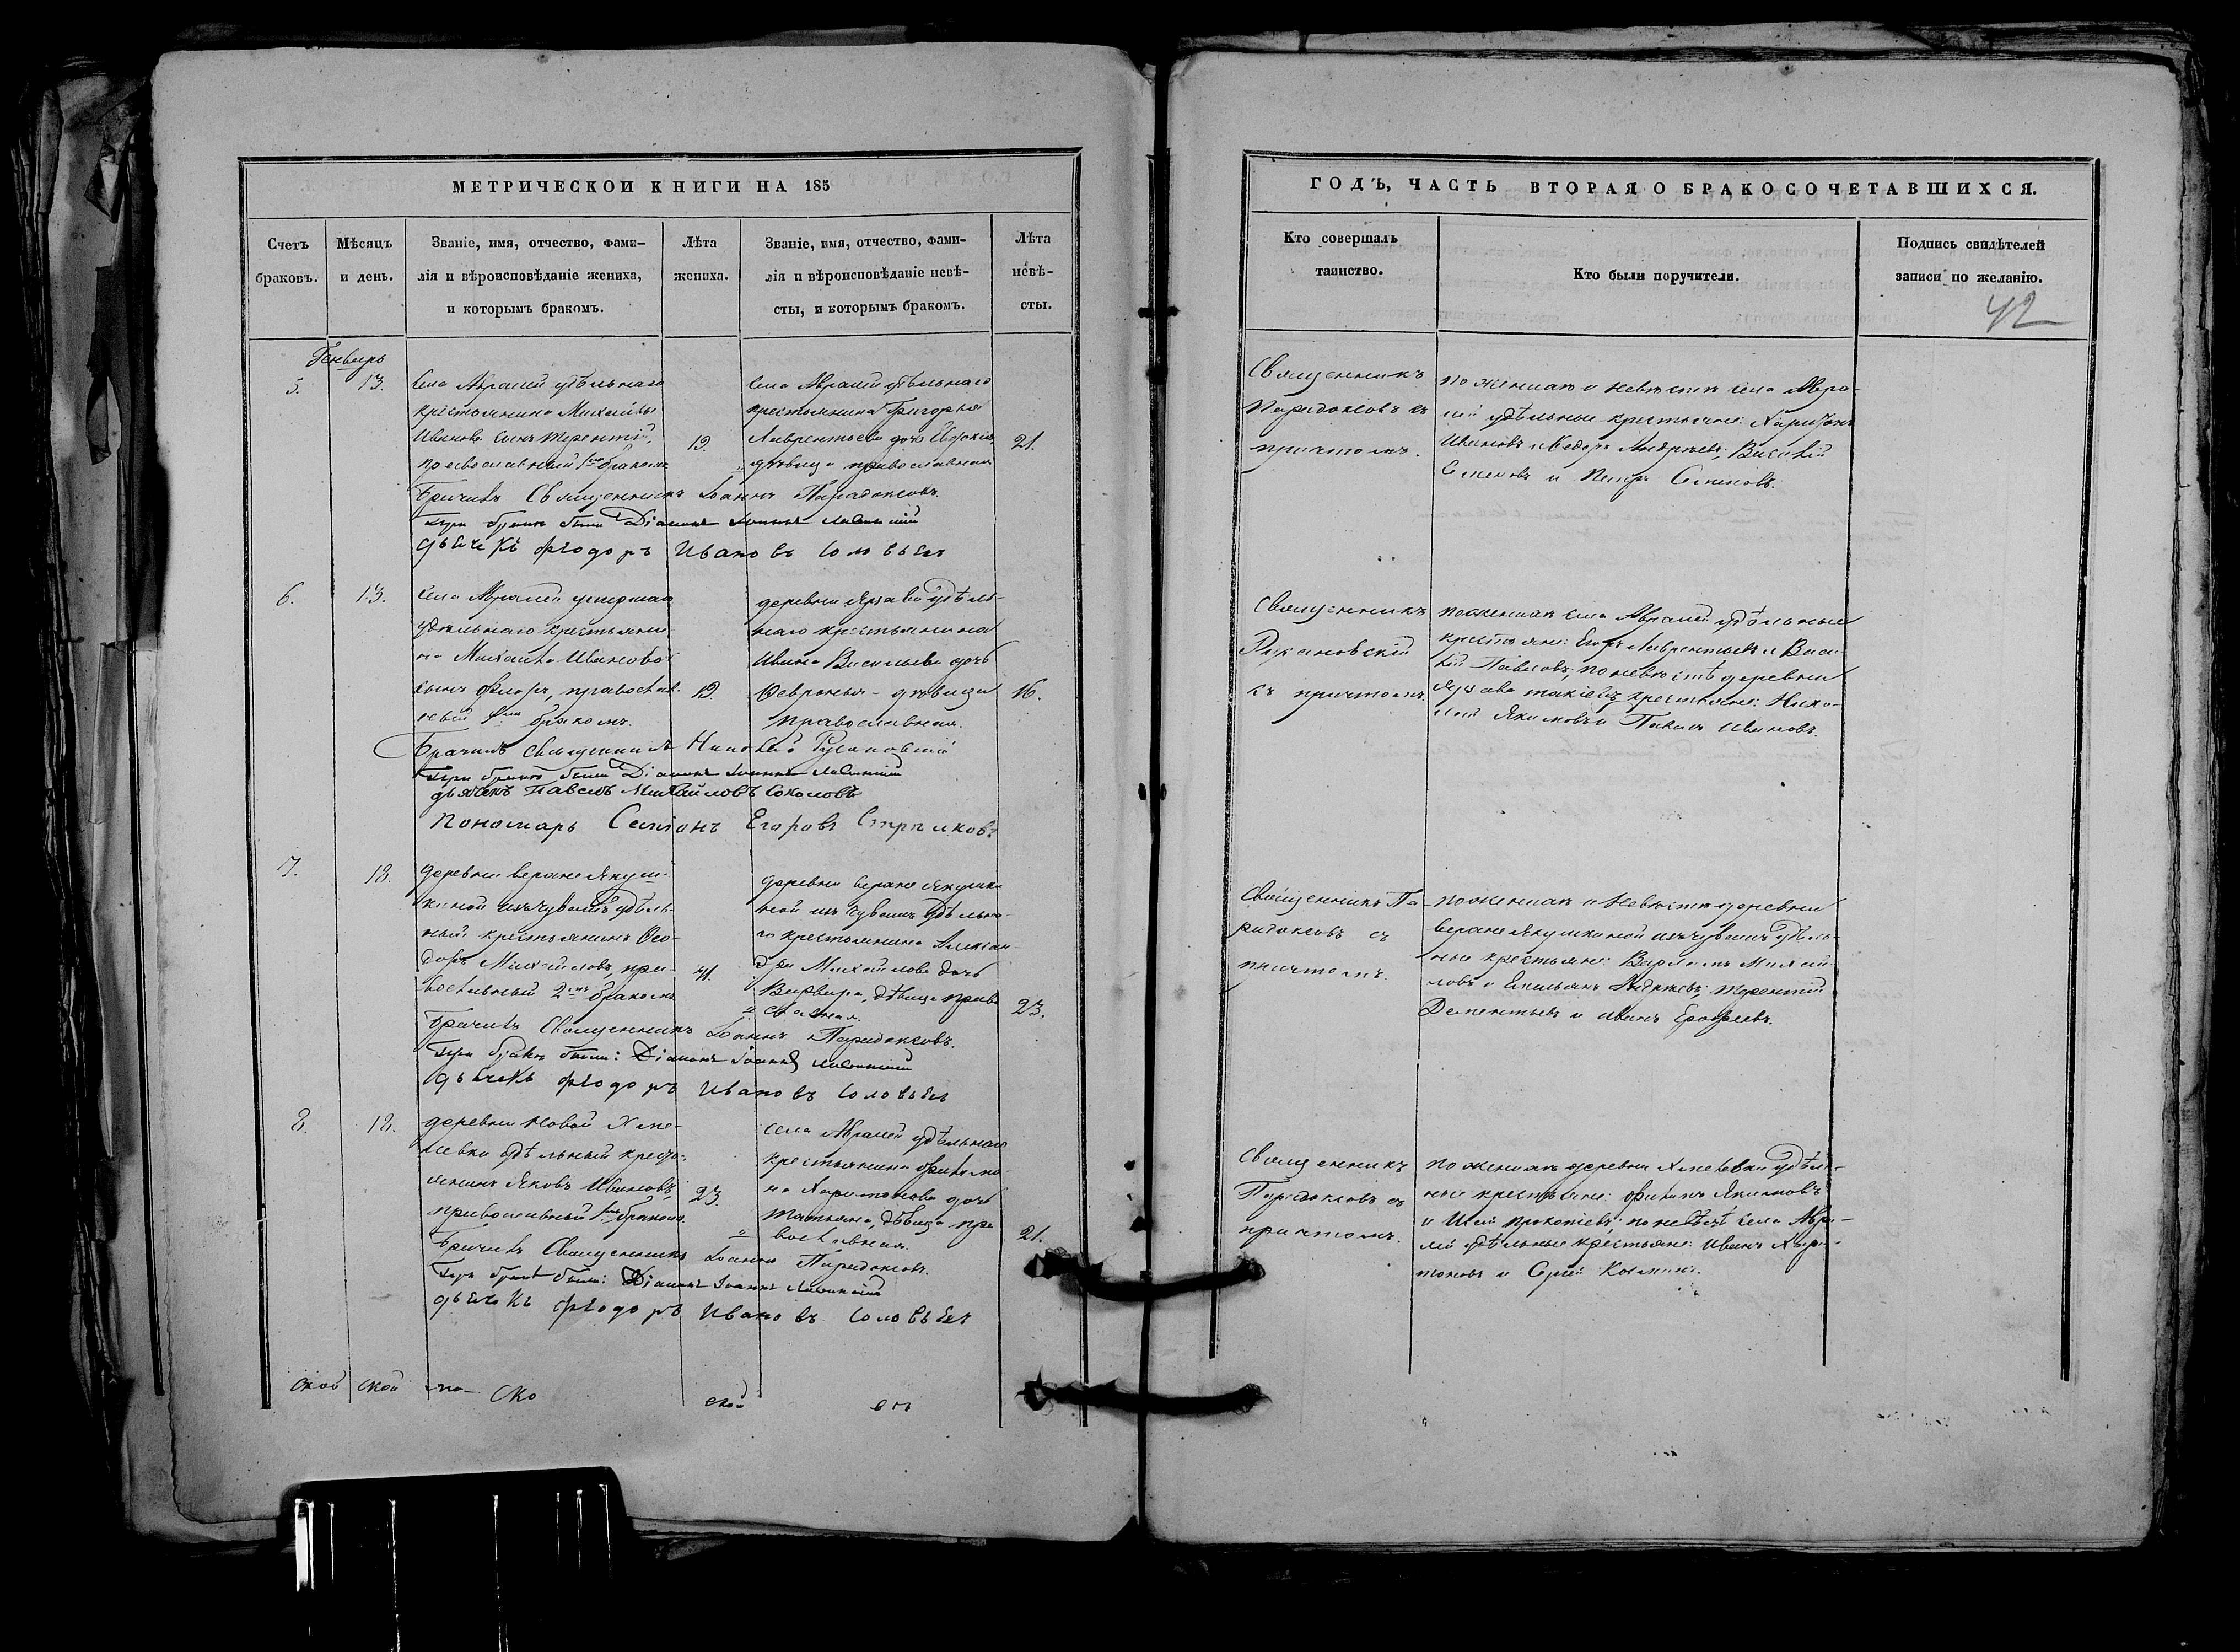 МЕТРИЧЕСКОЙ КНИГИ НА 185
Счетъ браковъ.
Мѣсяцъ и день.
Званіе, имя, отчество, фами-
лія и вѣроисповѣданіе жениха,
и которымъ бракомъ.
Лѣта жениха.
Званіе, имя, отчество, фами-
лія и вѣроисповѣданіе невѣ-
сты, и которымъ бракомъ.
Лѣта невѣ-
сты.
Генварь
5.
13.
Села Абрамей удѣльнаго
крестьянина Михаила
Иванова сынъ Терентій,
православный 1мъ бракомъ
19.
Села Абрамей удѣльнаго
крестьянина Григорья
Лаврентьева дочь Евдокія
дѣвица православная
21.
Брачилъ Священникъ Іоаннъ Парадоксовъ.
При бракѣ были Діаконъ Іоаннъ
дьячекъ Ѳеодоръ Ивановъ Соловьевъ
6.
13.
Села Абрамей умершаго
удѣльнаго крестьяни-
на Михаила Иванова
сынъ Флоръ, православ-
ный 1мъ бракомъ.
19.
деревни удѣль-
наго крестьянина
Ивана Васильева дочь
Февронья - дѣвица
православная.
16.
Брачилъ священникъ Николай Русановскій
При бракѣ были Діаконъ Іоаннъ
дьячекъ Павелъ Михайловъ Соколовъ
Пономарь Симіонъ Егоровъ Стрѣлковъ
7.
18.
деревни верхне Якуш-
киной изъ чувашъ удѣль-
ный крестьянинъ Ѳео-
доръ Михайловъ, пра-
вославный 2мъ бракомъ
41.
деревни верхне Якушки-
ной изъ чувашъ удѣльна-
го крестьянина Алексан-
дра Михайлова дочь
Варвара, дѣвица право
славная.
23.
Брачилъ Священникъ Іоаннъ Парадоксовъ.
При бракѣ были: Діаконъ Іоаннъ
дьячекъ Ѳеодоръ Ивановъ Соловьевъ
8.
18.
деревни Новой Хме-
левки удѣльный кресть-
янинъ Яковъ Ивановъ,
православный 1мъ бракомъ
23.
села Абрамей удѣльнаго
крестьянина Филимо-
на Харитонова дочь
Татьяна, дѣвица пра
вославная.
21.
Брачилъ Священникъ Іоаннъ Парадоксовъ.
При бракѣ были: Діаконъ Іоаннъ
дьячекъ Ѳеодоръ Ивановъ Соловьевъ
ской ской по- ско ской его
ГОДЪ, ЧАСТЬ ВТОРАЯ О БРАКОСОЧЕТАВШИХСЯ.
Кто совершалъ
таинство.
Кто были поручители.
Подпись свидѣтелей
записи по желанію.
42
Священникъ
Парадоксовъ съ
причтомъ.
по женихѣ и невѣстѣ села Абра-
мей удѣльные крестьяне: Харитонъ
Ивановъ и Ѳедоръ Андреевъ; Василій
Семеновъ и Петръ Семеновъ.
Священникъ
Русановскій
съ причтомъ
по женихѣ села Абрамей удѣльные
крестьяне: Егоръ Лаврентьевъ и Васи-
лій Павловъ; по невѣстѣ деревни
такіежъ крестьяне: Нико-
лай Якимовъ и Павелъ Ивановъ.
Священникъ Па-
радоксовъ съ
причтомъ.
по женихѣ и невѣстѣ деревни
верхне Якушкиной изъ чувашъ удѣль-
ные крестьяне: Варламъ Михай-
ловъ и Емельянъ Андреевъ; Терентій
Дементьевъ и Иванъ Ерофеевъ.
Священникъ
Парадоксовъ съ
причтомъ.
по женихѣ деревни Хмелевки удѣль-
ные крестьяне: Филипъ Якимовъ
и Прокопіевъ; по невѣстѣ села Абра-
мей удѣльные крестьяне: Иванъ Хари-
тоновъ и Сергей